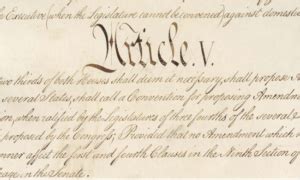 Executive (when the Legislature cannot be convened) against domestic
Article. V.
two thirds of both Houses shall deem it necessary, shall propose
several States, shall call a Convention for proposing Amendmen
when ratified by the Legislatures of three fourths of the several
proposed by the Congress; Provided that no Amendment which
affect the first and fourth Clauses in the Ninth Section of
in the Senate.